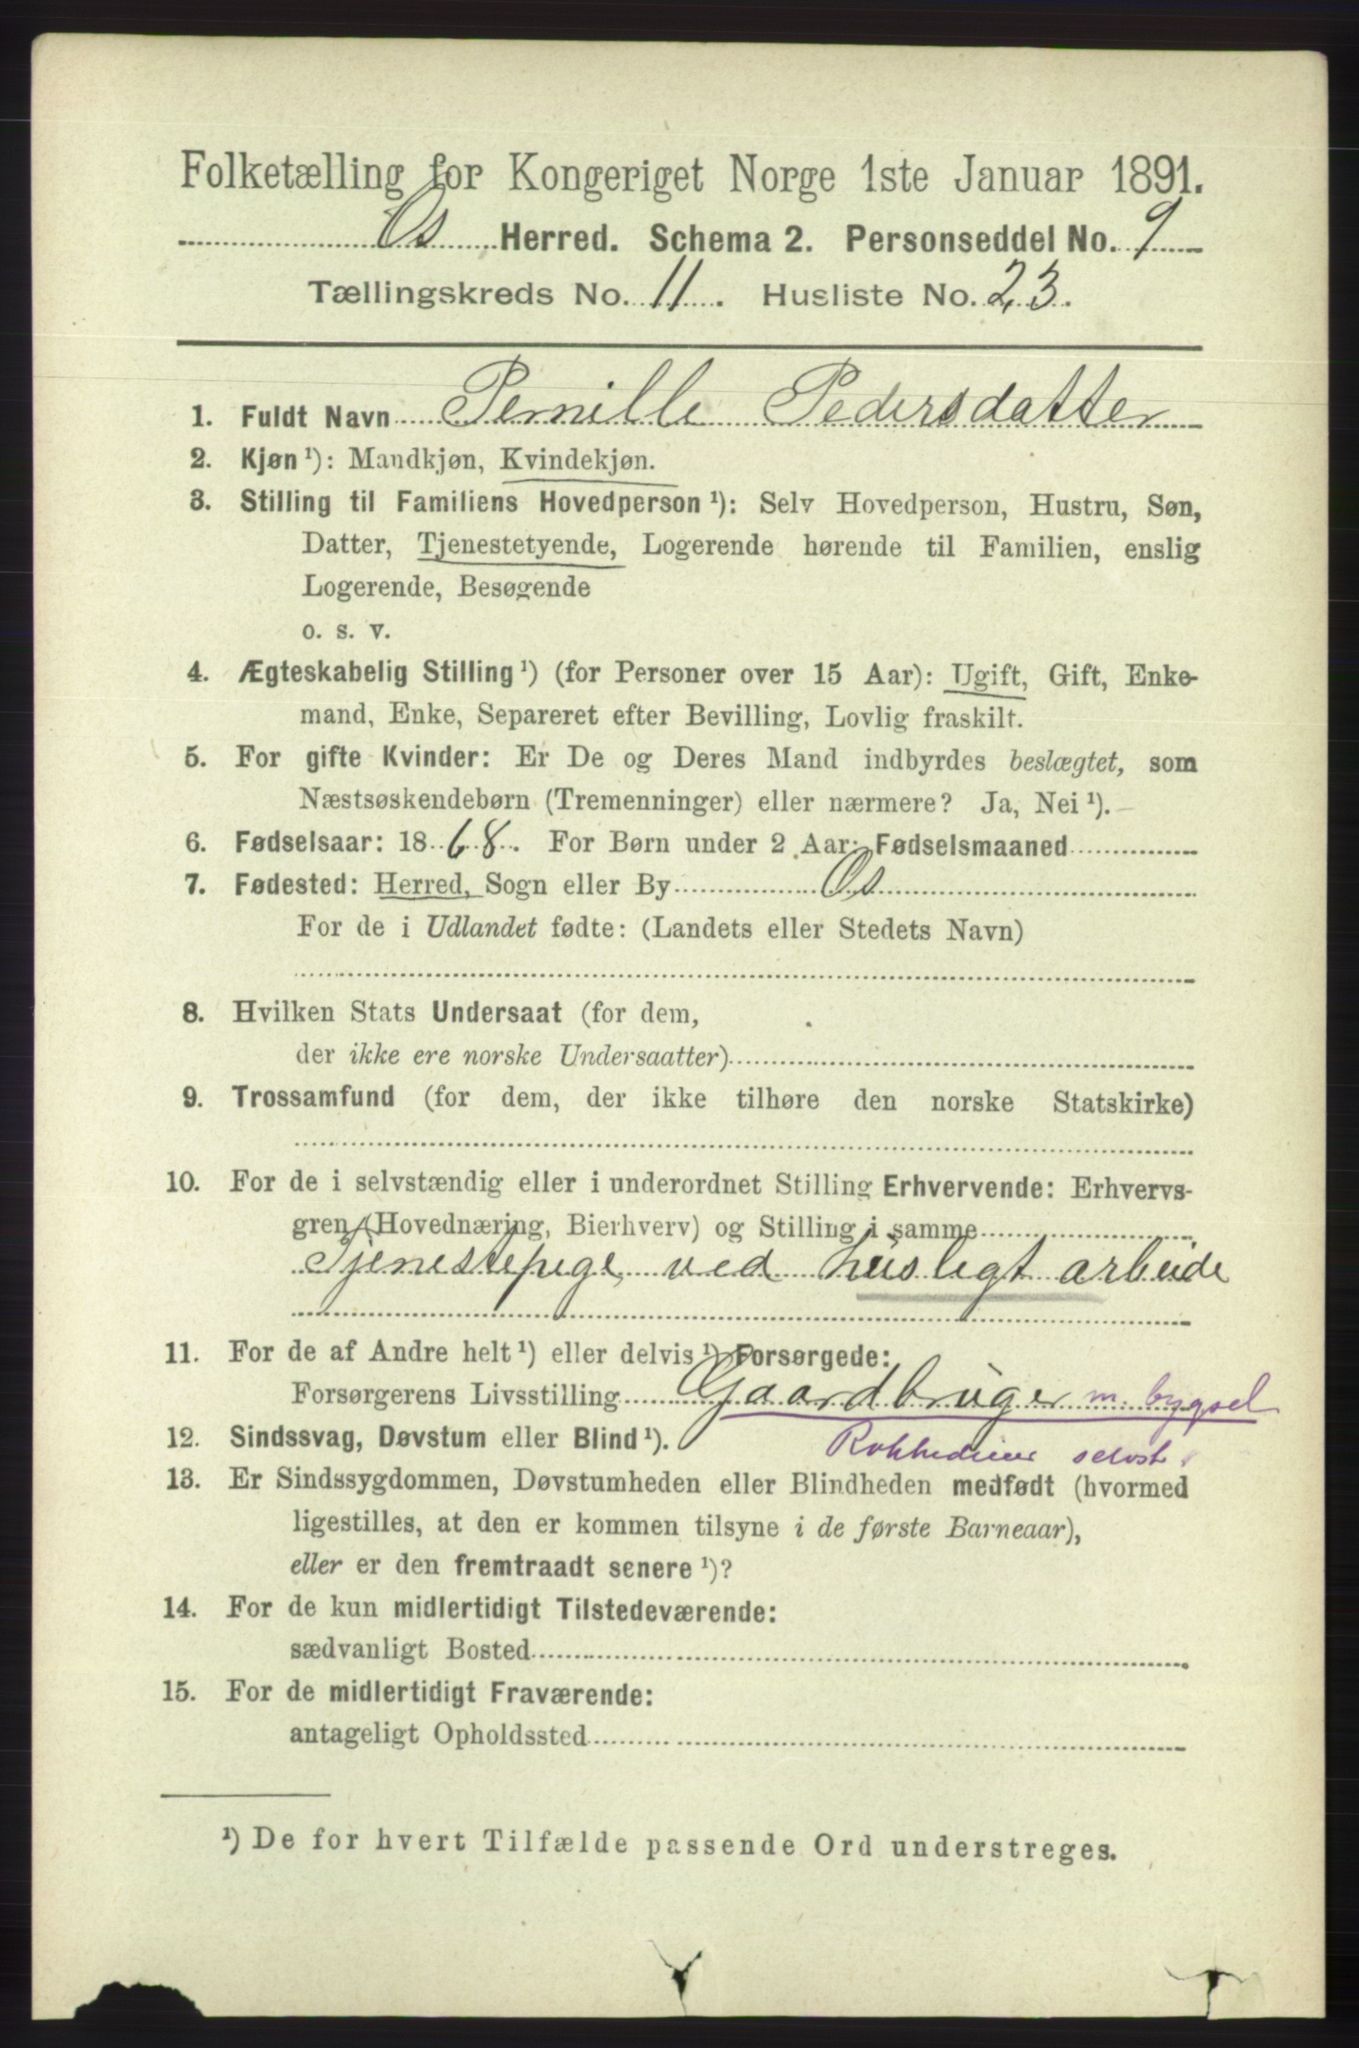 Folketælling for Kongeriget Norge 1ste Januar 1891.
Os Herred. Schema 2. Personseddel No. 9
Tællingskreds No. 11. Husliste No. 23.
1. Fuldt Navn Pernille Pedersdatter
2. Kjøn ¹): Mandkjøn, Kvindekjøn.
3. Stilling til Familiens Hovedperson ¹): Selv Hovedperson, Hustru, Søn,
Datter, Tjenestetyende, Logerende hørende til Familien, enslig
Logerende, Besøgende
o. s. v.
4. Ægteskabelig Stilling ¹) (for Personer over 15 Aar): Ugift, Gift, Enke-
mand, Enke, Separeret efter Bevilling, Lovlig fraskilt.
5. For gifte Kvinder: Er De og Deres Mand indbyrdes beslægtet, som
Næstsøskendebørn (Tremenninger) eller nærmere? Ja, Nei ¹).
6. Fødselsaar: 1868. For Børn under 2 Aar: Fødselsmaaned
7. Fødested: Herred, Sogn eller By Os
For de i Udlandet fødte: (Landets eller Stedets Navn)
8. Hvilken Stats Undersaat (for dem,
der ikke ere norske Undersaatter)
9. Trossamfund (for dem, der ikke tilhøre den norske Statskirke)
10. For de i selvstændig eller i underordnet Stilling Erhvervende: Erhvervs-
gren (Hovednæring, Bierhverv) og Stilling i samme
Tjenestepige, ved husligt arbeide
11. For de af Andre helt ¹) eller delvis ¹) Forsørgede:
Forsørgerens Livsstilling Gaardbruger m. bygsel
12. Sindssvag, Døvstum eller Blind ¹).
13. Er Sindssygdommen, Døvstumheden eller Blindheden medfødt (hvormed
ligestilles, at den er kommen tilsyne i de første Barneaar),
eller er den fremtraadt senere ¹)?
14. For de kun midlertidigt Tilstedeværende:
sædvanligt Bosted
15. For de midlertidigt Fraværende:
antageligt Opholdssted
¹) De for hvert Tilfælde passende Ord understreges.